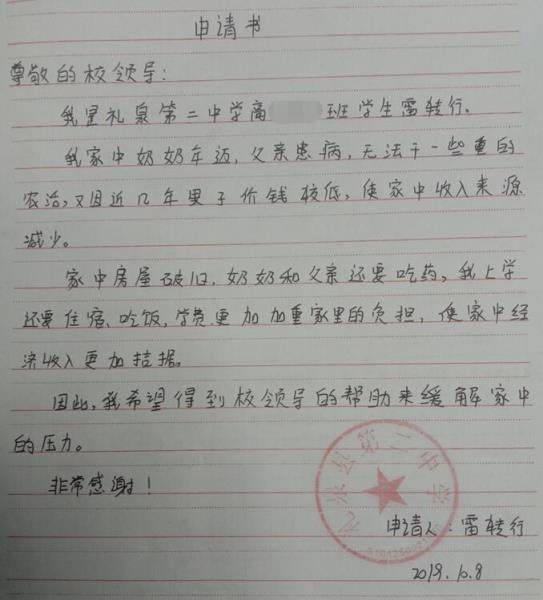 申请书
尊敬的校领导：
我是礼泉第二中学高 班学生雷转行。
我家中奶奶年迈，父亲患病，无法干一些重的
农活，又且近几年果子价钱较低，使家中收入来源
减少。
家中房屋破旧，奶奶和父亲还要吃药，我上学
还要住宿、吃饭，学费更加加重家里的负担，使家中经
济收入更加拮据。
因此，我希望得到校领导的帮助来缓解家中
的压力。
非常感谢！
礼泉县第二中学
申请人：雷转行
2019.10.8